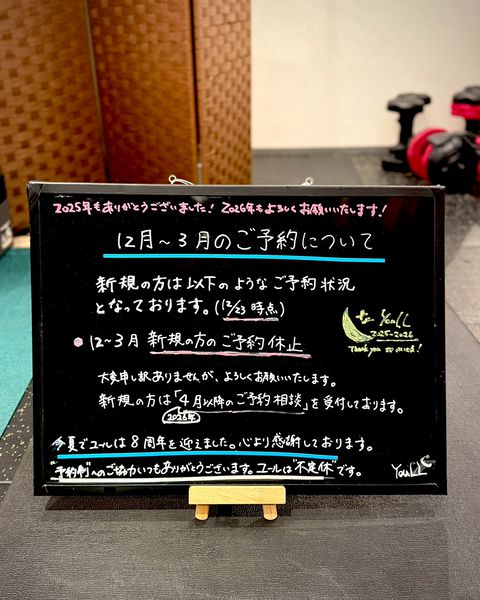 2025年もありがとうございました！ 2026年もよろしくお願いいたします！
12月～3月のご予約について
新規の方は以下のようなご予約状況
となっております。(12/23 時点)
YouLL
2025-2026
Thank you so much!
12～3月 新規の方のご予約休止
大変申し訳ありませんが、よろしくお願いいたします。
新規の方は「4月以降のご予約相談」を受付しております。
2026年
今夏でユールは8周年を迎えました。心より感謝しております。
"予約制"へのご協力いつもありがとうございます。ユールは"不定休"です。
YouLL